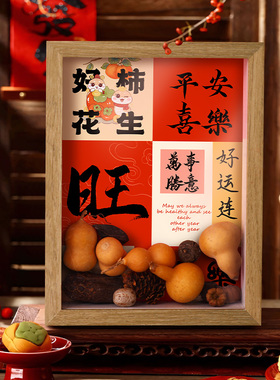 好柿
花生
平安
喜樂
旺
萬事
勝意
好运连
May we always
be healthy and see
each
other year
after year